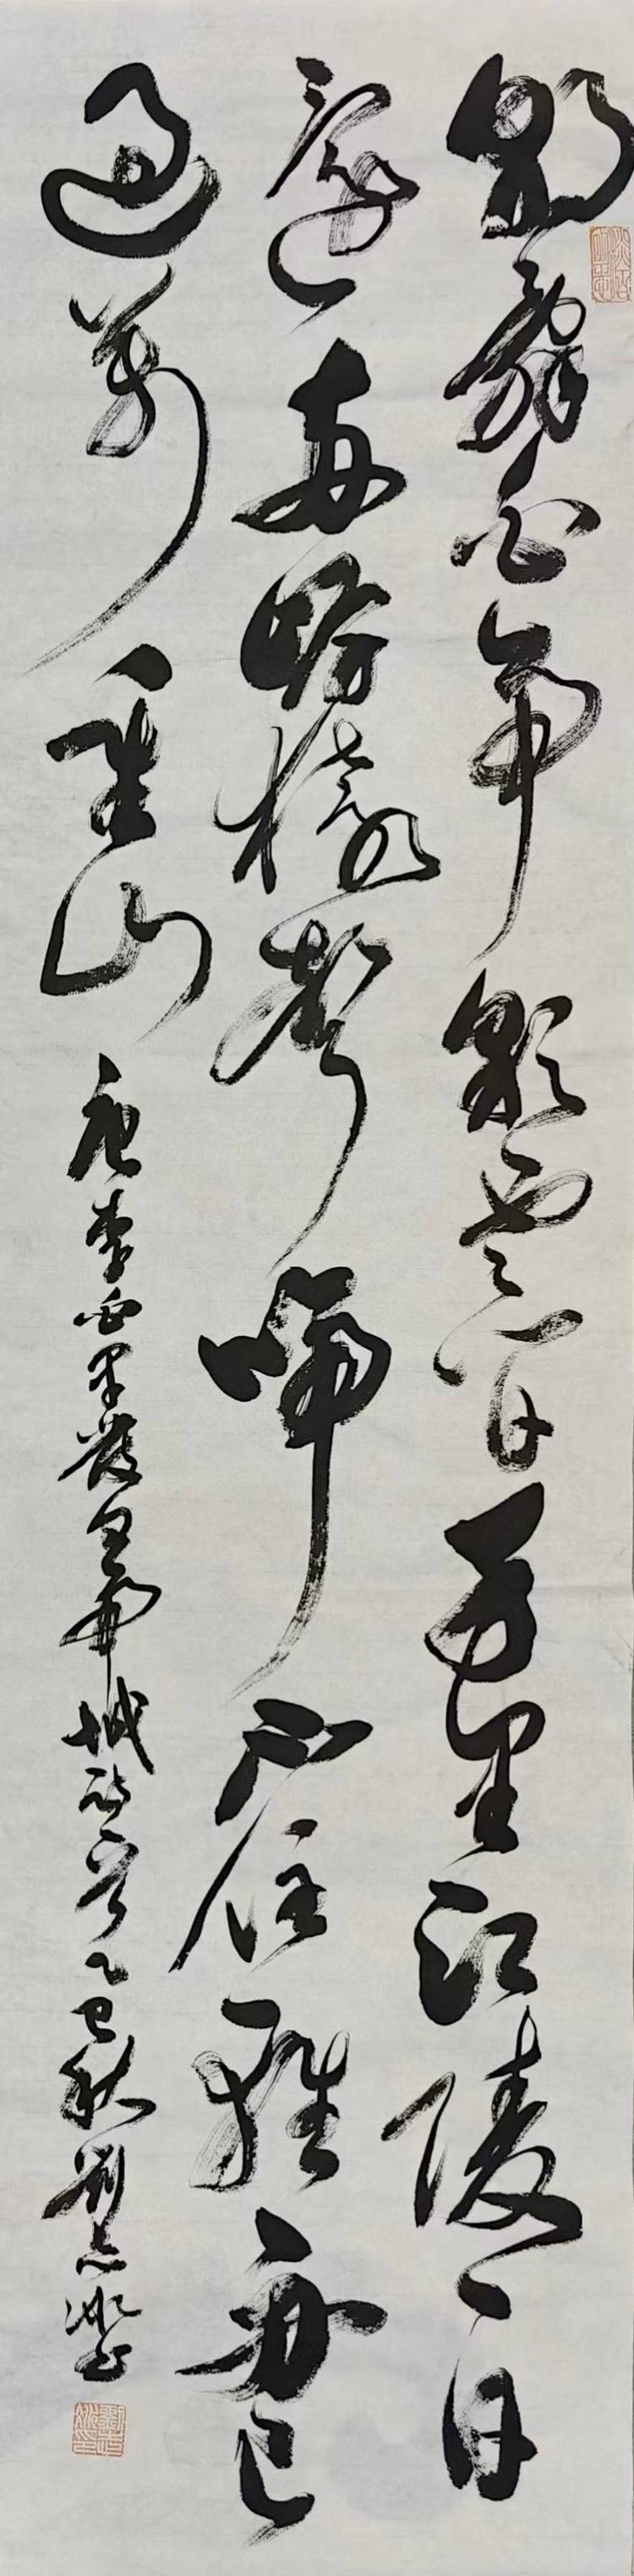 朝辭白帝彩雲間千里江陵一日
還兩岸猿聲啼不住輕舟已
過萬重山 唐李白早發白帝城詩 乙巳秋 劉志